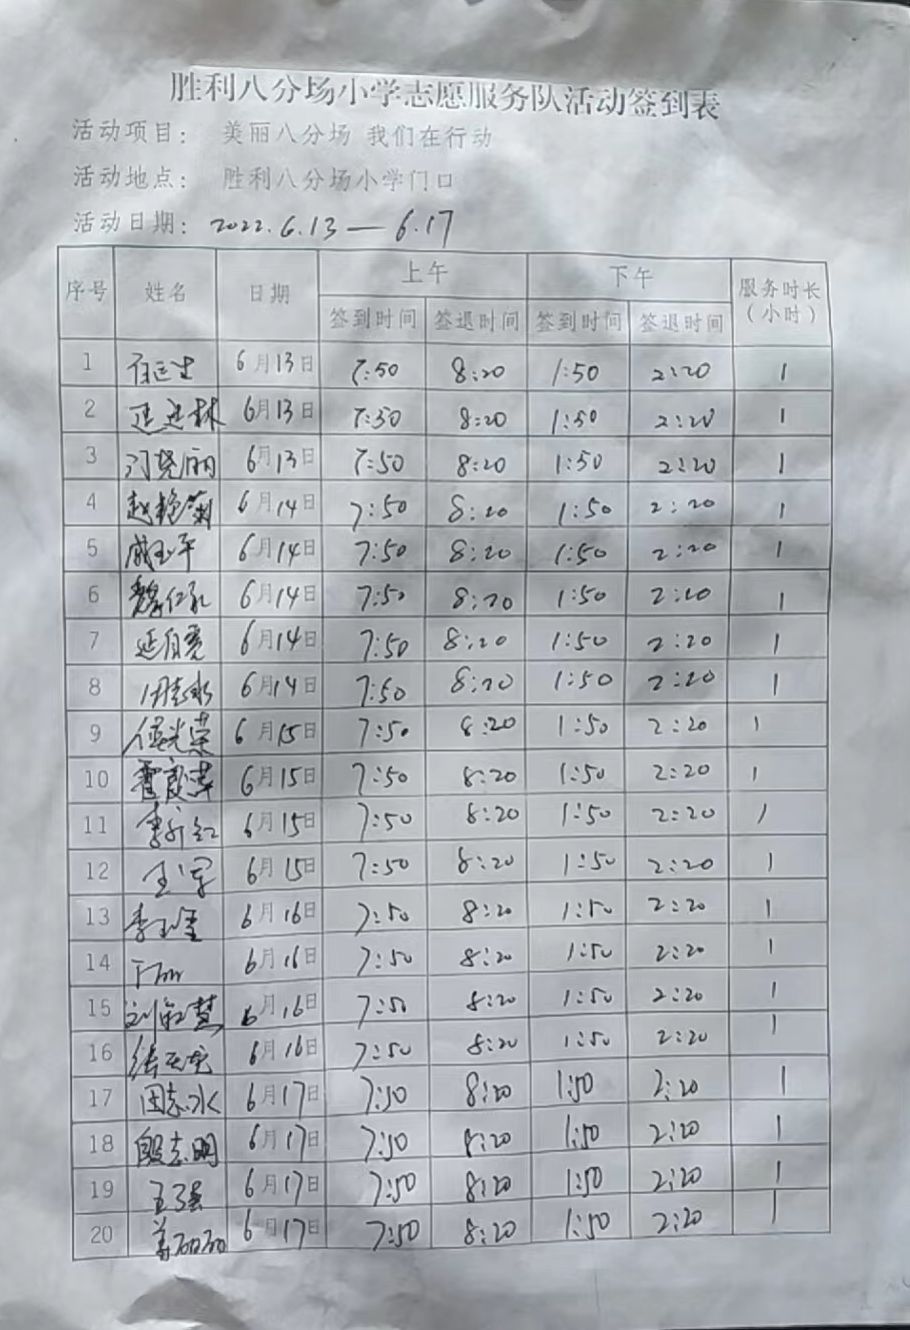 胜利八分场小学志愿服务队活动签到表
活动项目： 美丽八分场 我们在行动
活动地点： 胜利八分场小学门口
活动日期： 2022.6.13 — 6.17
序号 姓名 日期 上午 下午 服务时长（小时）
签到时间 签退时间 签到时间 签退时间
1 6月13日 7:50 8:20 1:50 2:20 1
2 6月13日 7:50 8:20 1:50 2:20 1
3 6月13日 7:50 8:20 1:50 2:20 1
4 赵艳菊 6月14日 7:50 8:20 1:50 2:20 1
5 戚玉平 6月14日 7:50 8:20 1:50 2:20 1
6 6月14日 7:50 8:20 1:50 2:20 1
7 6月14日 7:50 8:20 1:50 2:20 1
8 6月14日 7:50 8:20 1:50 2:20 1
9 6月15日 7:50 8:20 1:50 2:20 1
10 6月15日 7:50 8:20 1:50 2:20 1
11 6月15日 7:50 8:20 1:50 2:20 1
12 王军 6月15日 7:50 8:20 1:50 2:20 1
13 6月16日 7:50 8:20 1:50 2:20 1
14 6月16日 7:50 8:20 1:50 2:20 1
15 6月16日 7:50 8:20 1:50 2:20 1
16 6月16日 7:50 8:20 1:50 2:20 1
17 田志水 6月17日 7:50 8:20 1:50 2:20 1
18 段志明 6月17日 7:50 8:20 1:50 2:20 1
19 王强 6月17日 7:50 8:20 1:50 2:20 1
20 6月17日 7:50 8:20 1:50 2:20 1